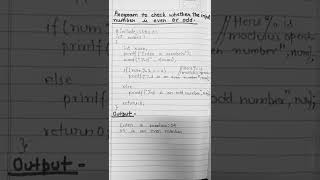 Program to check whether the input
number is even or odd.
#include<stdio.h>
int main()
{
int num;
printf("Enter a number");
scanf("%d", &num);
if(num%2 == 0)
printf("%d is an even number", num);
else
printf("%d is an odd number", num);
return 0;
}
Output -
Enter a number: 24
24 is an even number
// Here % is
modulus opera
even number", num)
odd number", num);
else
printf(
return 0;
}
Output -